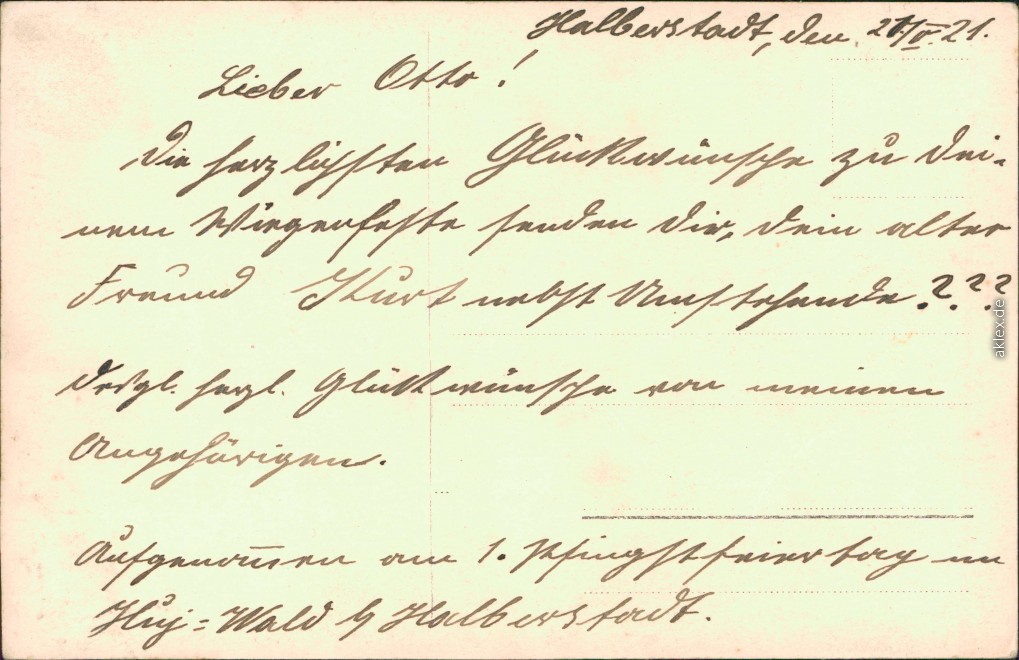 Halberstadt, den 21/IV.21.
Lieber Otto!
Die herzlichsten Glückwünsche zu dei-
nem Wiegenfeste senden dir, dein alter
Freund Kurt nebst Umstehende???
Desgl. herzl. Glückwünsche von meinen
Angehörigen.
Aufgenom̅en am 1. Pfingstfeiertag im
Huj=Wald b/ Halberstadt.
aklex.de